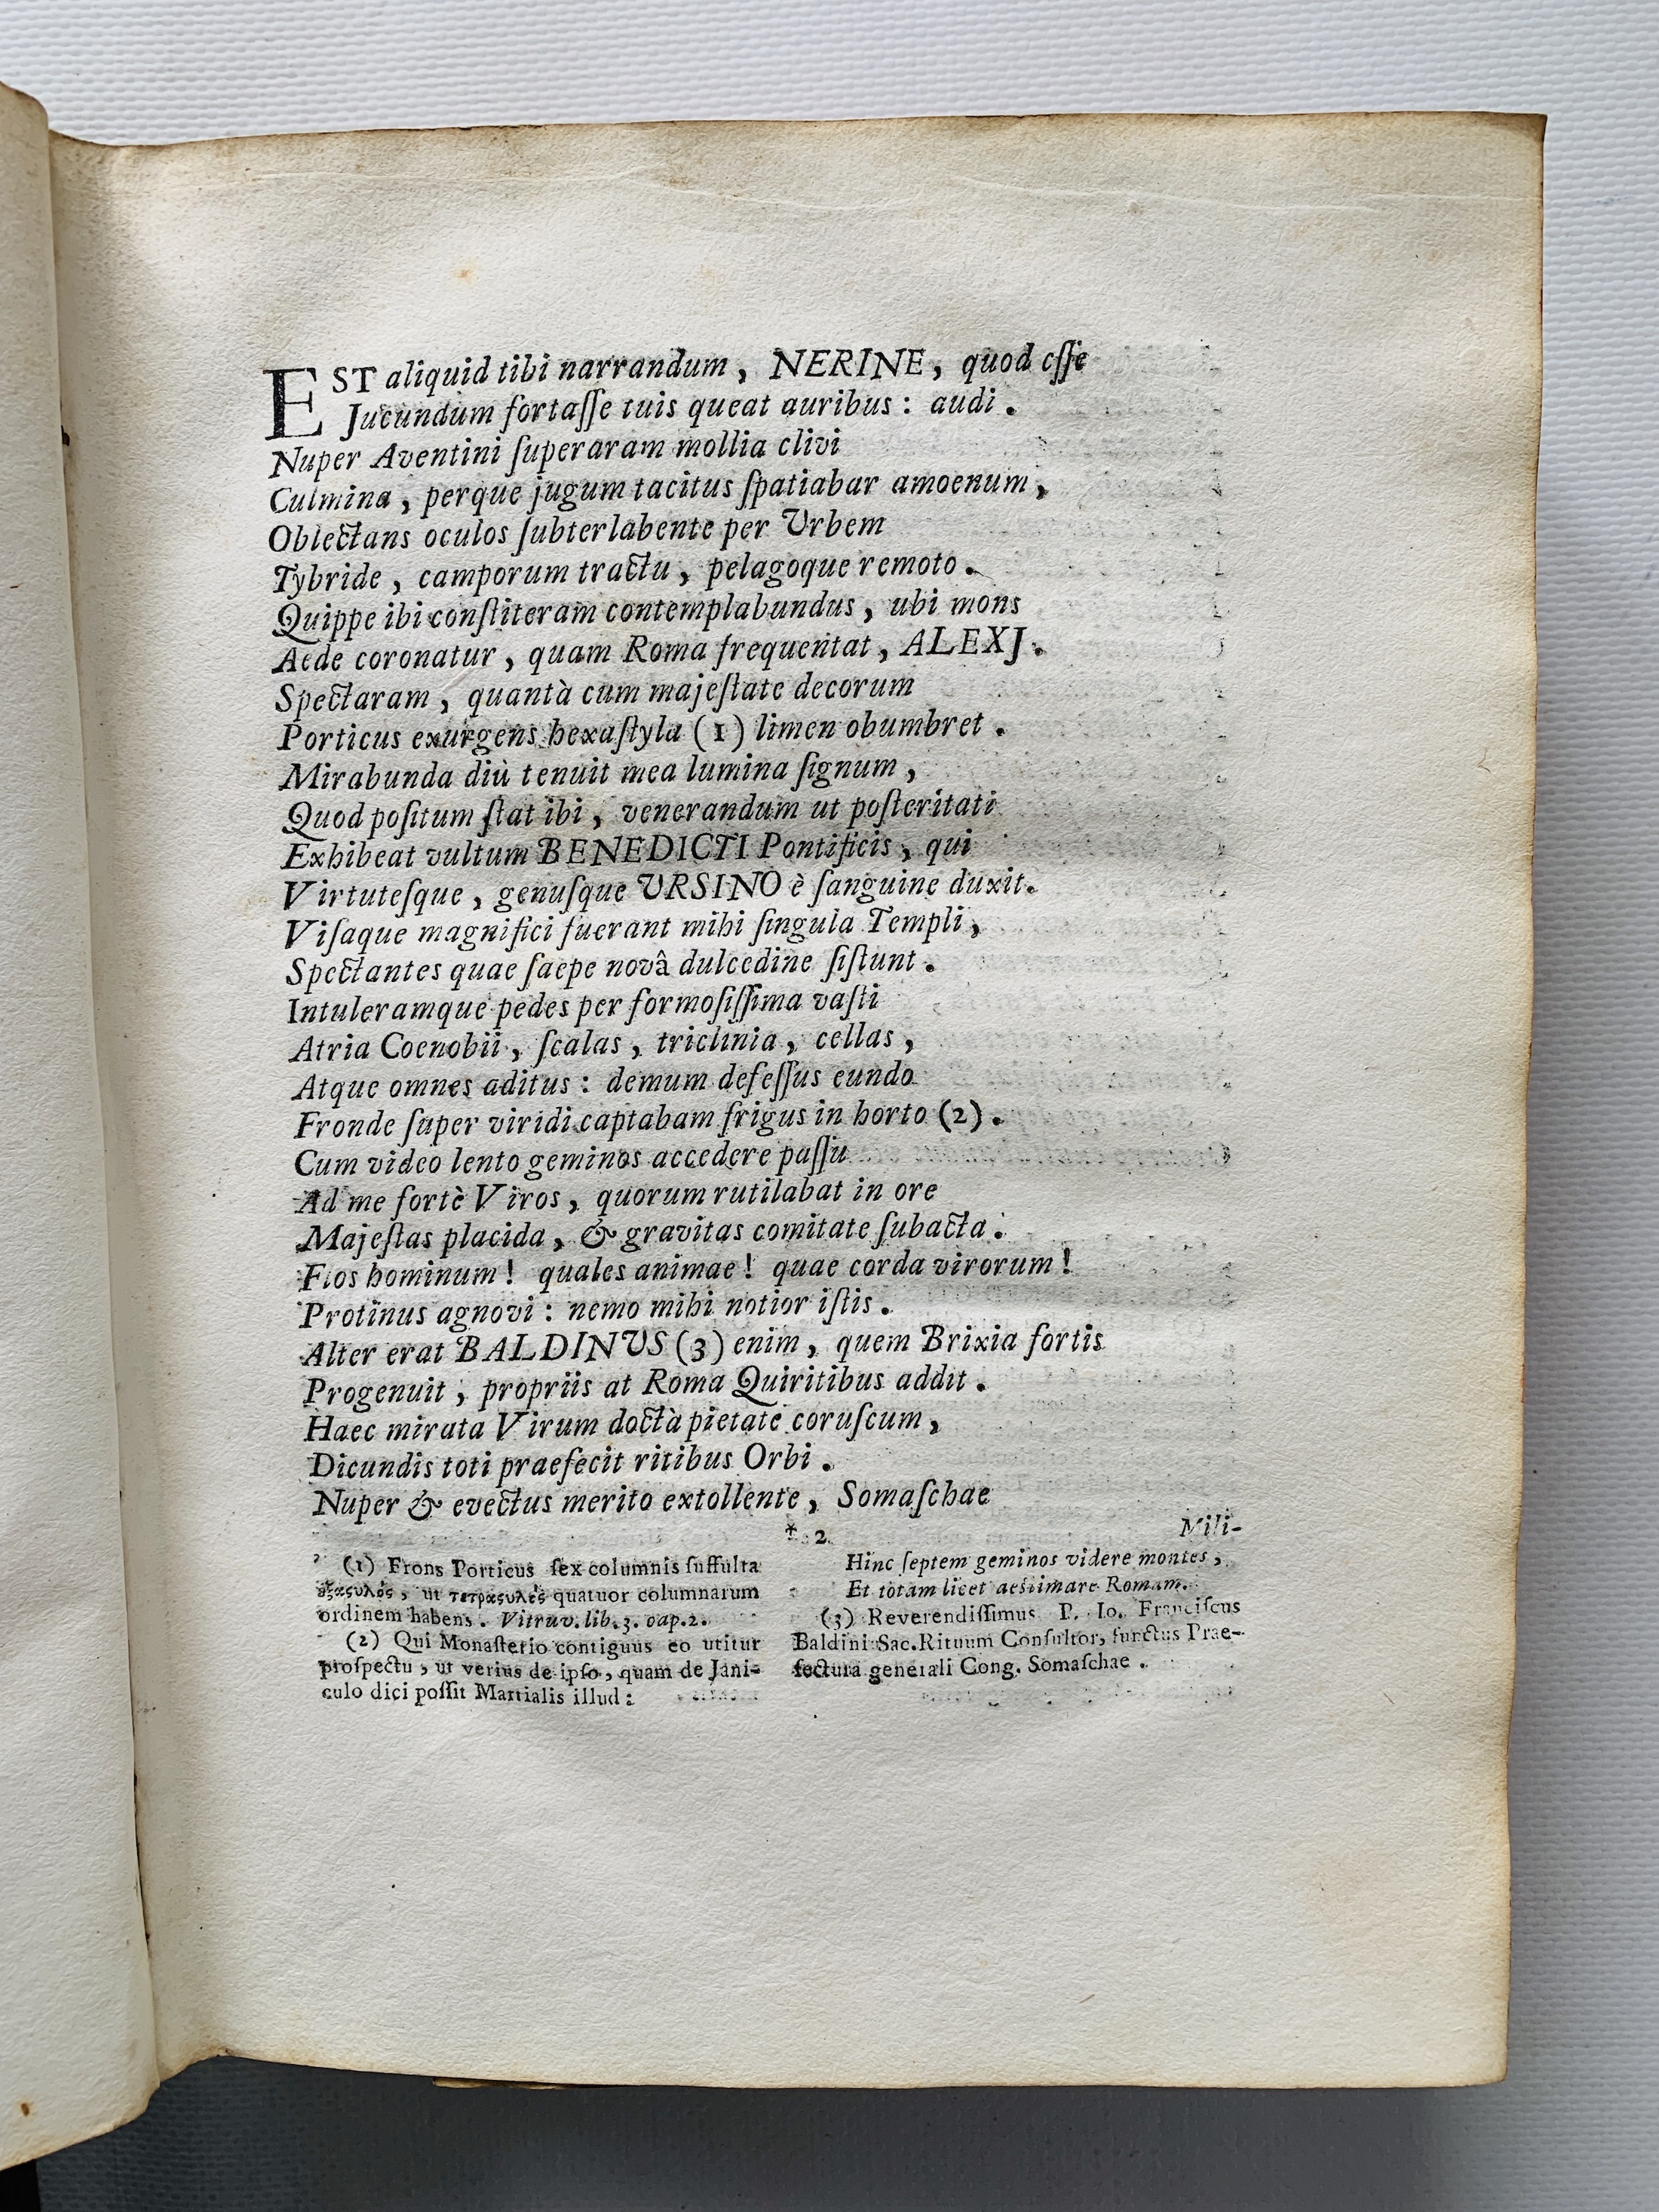 EST aliquid tibi narrandum, NERINE, quod esse
Jucundum fortaſſe tuis queat auribus: audi.
Nuper Aventini ſuperaram mollia clivi
Culmina, perque jugum tacitus ſpatiabar amoenum,
Oblectans oculos ſubterlabente per Urbem
Tybride, camporum tractu, pelagoque remoto.
Quippe ibi conſtiteram contemplabundus, ubi mons
Aede coronatur, quam Roma frequentat, ALEXJ.
Spectaram, quantà cum majeſtate decorum
Porticus exurgens hexaſtyla (1) limen obumbret.
Mirabunda diù tenuit mea lumina ſignum,
Quod poſitum ſtat ibi, venerandum ut poſteritati
Exhibeat vultum BENEDICTI Pontificis, qui
Virtuteſque, genuſque URSINO è ſanguine duxit.
Viſaque magnifici fuerant mihi ſingula Templi,
Spectantes quae ſaepe novâ dulcedine ſiſtunt.
Intuleramque pedes per formoſiſſima vaſti
Atria Coenobii, ſcalas, triclinia, cellas,
Atque omnes aditus: demum defeſſus eundo
Fronde ſuper viridi captabam frigus in horto (2).
Cum video lento geminos accedere paſſu
Ad me fortè Viros, quorum rutilabat in ore
Majeſtas placida, & gravitas comitate ſubacta.
Flos hominum! quales animae! quae corda virorum!
Protinus agnovi: nemo mihi notior iſtis.
Alter erat BALDINUS (3) enim, quem Brixia fortis
Progenuit, propriis at Roma Quiritibus addit.
Haec mirata Virum doctà pietate coruſcum,
Dicundis toti praefecit ritibus Orbi.
Nuper & evectus merito extollente, Somaſchae
* 2 Mili-
(1) Frons Porticus ſex columnis ſuffulta
ἑξάϛυλός, ut τετραϛυλές quatuor columnarum
ordinem habens. Vitruv. lib. 3. cap. 2.
(2) Qui Monaſterio contiguus eo utitur
proſpectu, ut verius de ipſo, quam de Jani-
culo dici poſſit Martialis illud:
Hinc ſeptem geminos videre montes,
Et totam licet aeſtimare Romam.
(3) Reverendiſſimus P. Io. Franciſcus
Baldini Sac. Rituum Conſultor, functus Prae-
fectura generali Cong. Somaſchae.